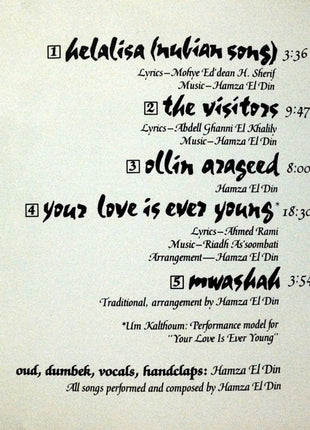 1 helalisa (nubian song) 3:36
Lyrics–Mohye Ed'dean H. Sherif
Music–Hamza El Din
2 the visitors 9:47
Lyrics–Abdell Ghanni El Khalily
Music–Hamza El Din
3 ollin arageed 8:00
Hamza El Din
4 your love is ever young* 18:30
Lyrics–Ahmed Rami
Music–Riadh As'soombati
Arrangement–Hamza El Din
5 mwashah 3:54
Traditional, arrangement by Hamza El Din
*Um Kalthoum: Performance model for
"Your Love Is Ever Young"
oud, dumbek, vocals, handclaps: Hamza El Din
All songs performed and composed by Hamza El Din